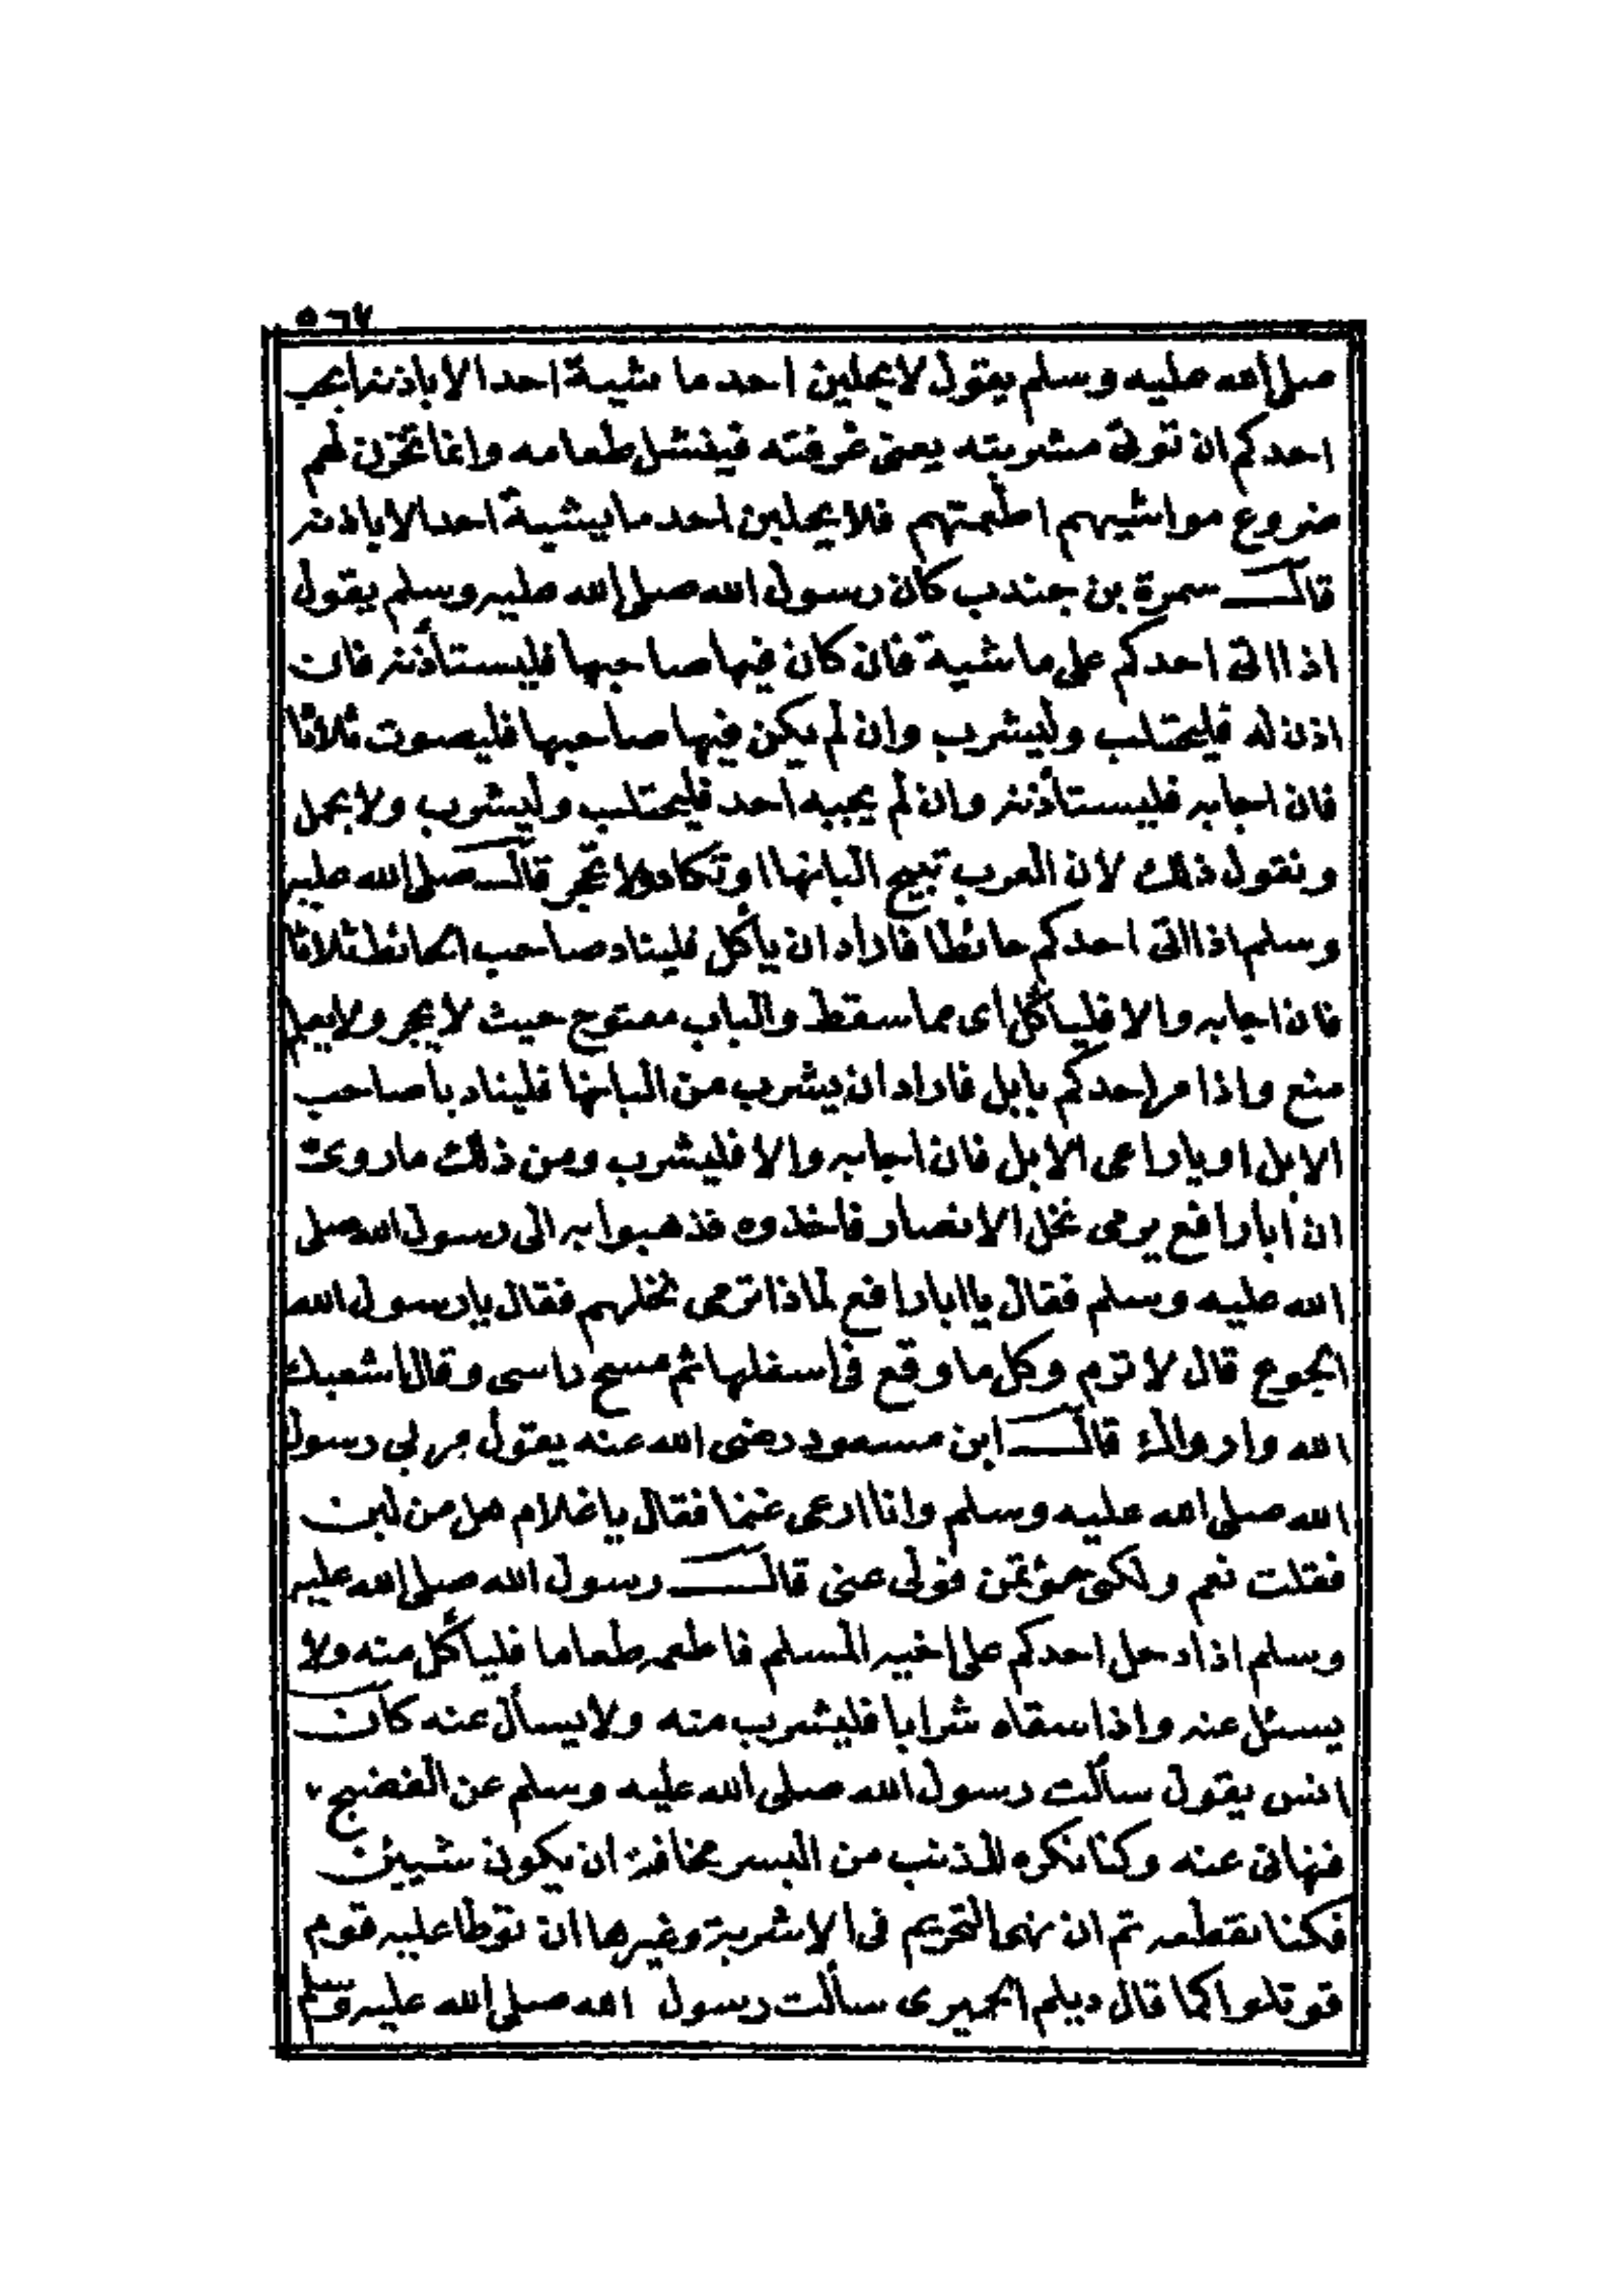 ٥٦٧
صلى الله عليه وسلم يقول لا يحلبن احد ماشية احدا الا باذنه ايحب
احدكم ان تؤتى مشربته يعنى غرفته فينتثل طعامه وانما تخزن لهم
ضروع مواشيهم اطعمتهم فلا يحلبن احد ماشية احدا الا باذنه
قال سمرة بن جندب كان رسول الله صلى الله عليه وسلم يقول
اذا اتى احدكم على ماشية فان كان فيها صاحبها فليستأذنه فان
اذن له فليحتلب وليشرب وان لم يكن فيها صاحبها فليصوت ثلاثا
فان اجابه فليستأذنه وان لم يجبه احد فليحتلب وليشرب ولا يحمل
ونقول ذلك لان العرب تبيح البانها او تكاد ولا تحجر قال صلى الله عليه
وسلم اذا اتى احدكم حائطا فاراد ان يأكل فليناد صاحب الحائط ثلاثا
فان اجابه والا فليأكل اى مما سقط والباب مفتوح حيث لا يحجر ولا يعلم
منع واذا مر احدكم بابل فاراد ان يشرب من البانها فليناد يا صاحب
الابل او يا راعى الابل فان اجابه والا فليشرب ومن ذلك ما روى
ان أبا رافع يرمى نخل الانصار فاخذوه فذهبوا به الى رسول الله صلى
الله عليه وسلم فقال يا ابا رافع لماذا ترمى نخلهم فقال يا رسول الله
الجوع قال لا ترم وكل ما وقع فى اسفلها ثم مسح راسى وقال اشبعك
الله وارواك قال ابن مسعود رضى الله عنه يقول مر بى رسول
الله صلى الله عليه وسلم وانا ارعى غنما فقال يا غلام هل من لبن
فقلت نعم ولكنى مؤتمن فولى عنى قال رسول الله صلى الله عليه
وسلم اذا دخل احدكم على اخيه المسلم فاطعمه طعاما فليأكل منه ولا
يسئل عنه واذا سقاه شرابا فليشرب منه ولا يسأل عنه كان
انس يقول سألت رسول الله صلى الله عليه وسلم عن الفضيح
فنهانى عنه وكنا نكره المذنب من البسر مخافة ان يكون شيين
فكنا نقطعه ثم ان نهى التحريم فى الاشربة وغيرها ان توطا عليه قوم
قوتلوا كما قال ديلم الحميرى سألت رسول الله صلى الله عليه وسلم